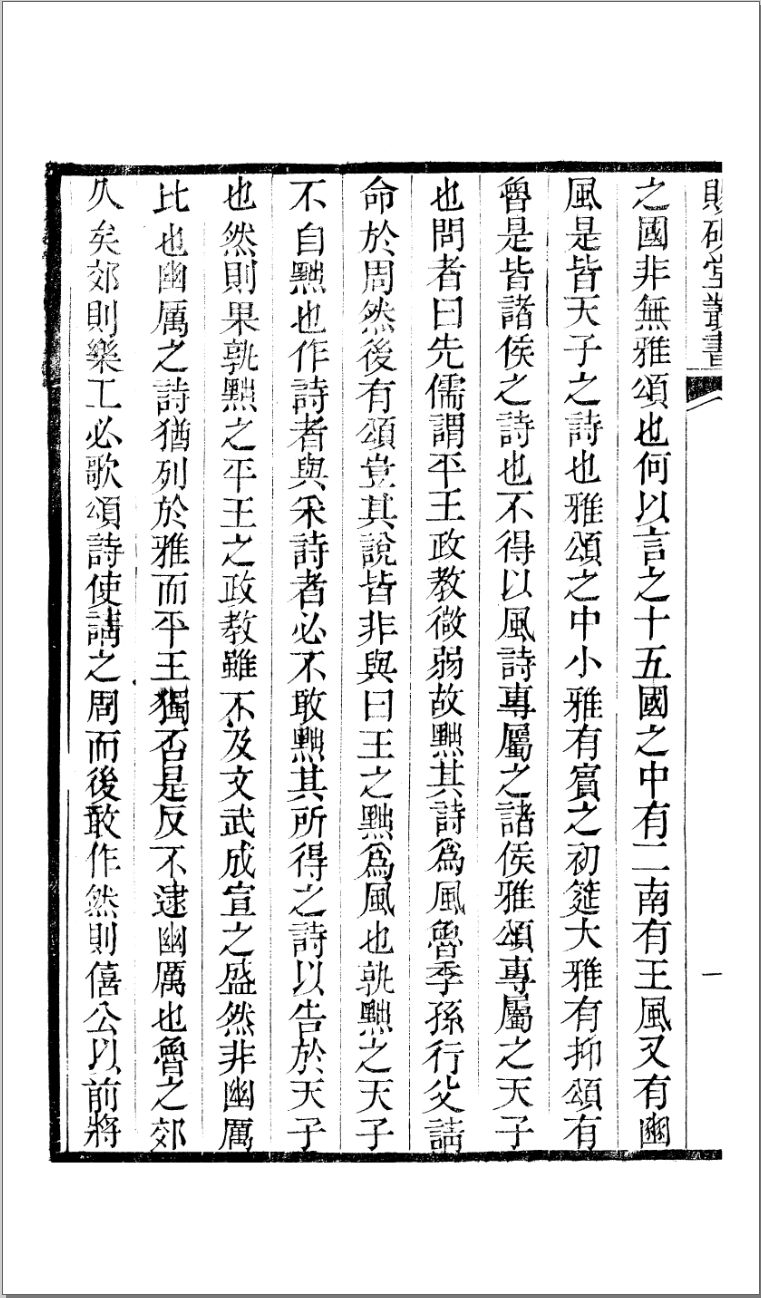 賜硯堂叢書
一
之國非無雅頌也何以言之十五國之中有二南有王風又有豳
風是皆天子之詩也雅頌之中小雅有賓之初筵大雅有抑頌有
魯是皆諸侯之詩也不得以風詩專屬之諸侯雅頌專屬之天子
也問者曰先儒謂平王政教微弱故黜其詩爲風魯季孫行父請
命於周然後有頌豈其說皆非與曰王之黜爲風也孰黜之天子
不自黜也作詩者與采詩者必不敢黜其所得之詩以告於天子
也然則果孰黜之平王之政教雖不及文武成宣之盛然非幽厲
比也幽厲之詩猶列於雅而平王獨否是反不逮幽厲也魯之郊
久矣郊則樂工必歌頌詩使請之周而後敢作然則僖公以前將